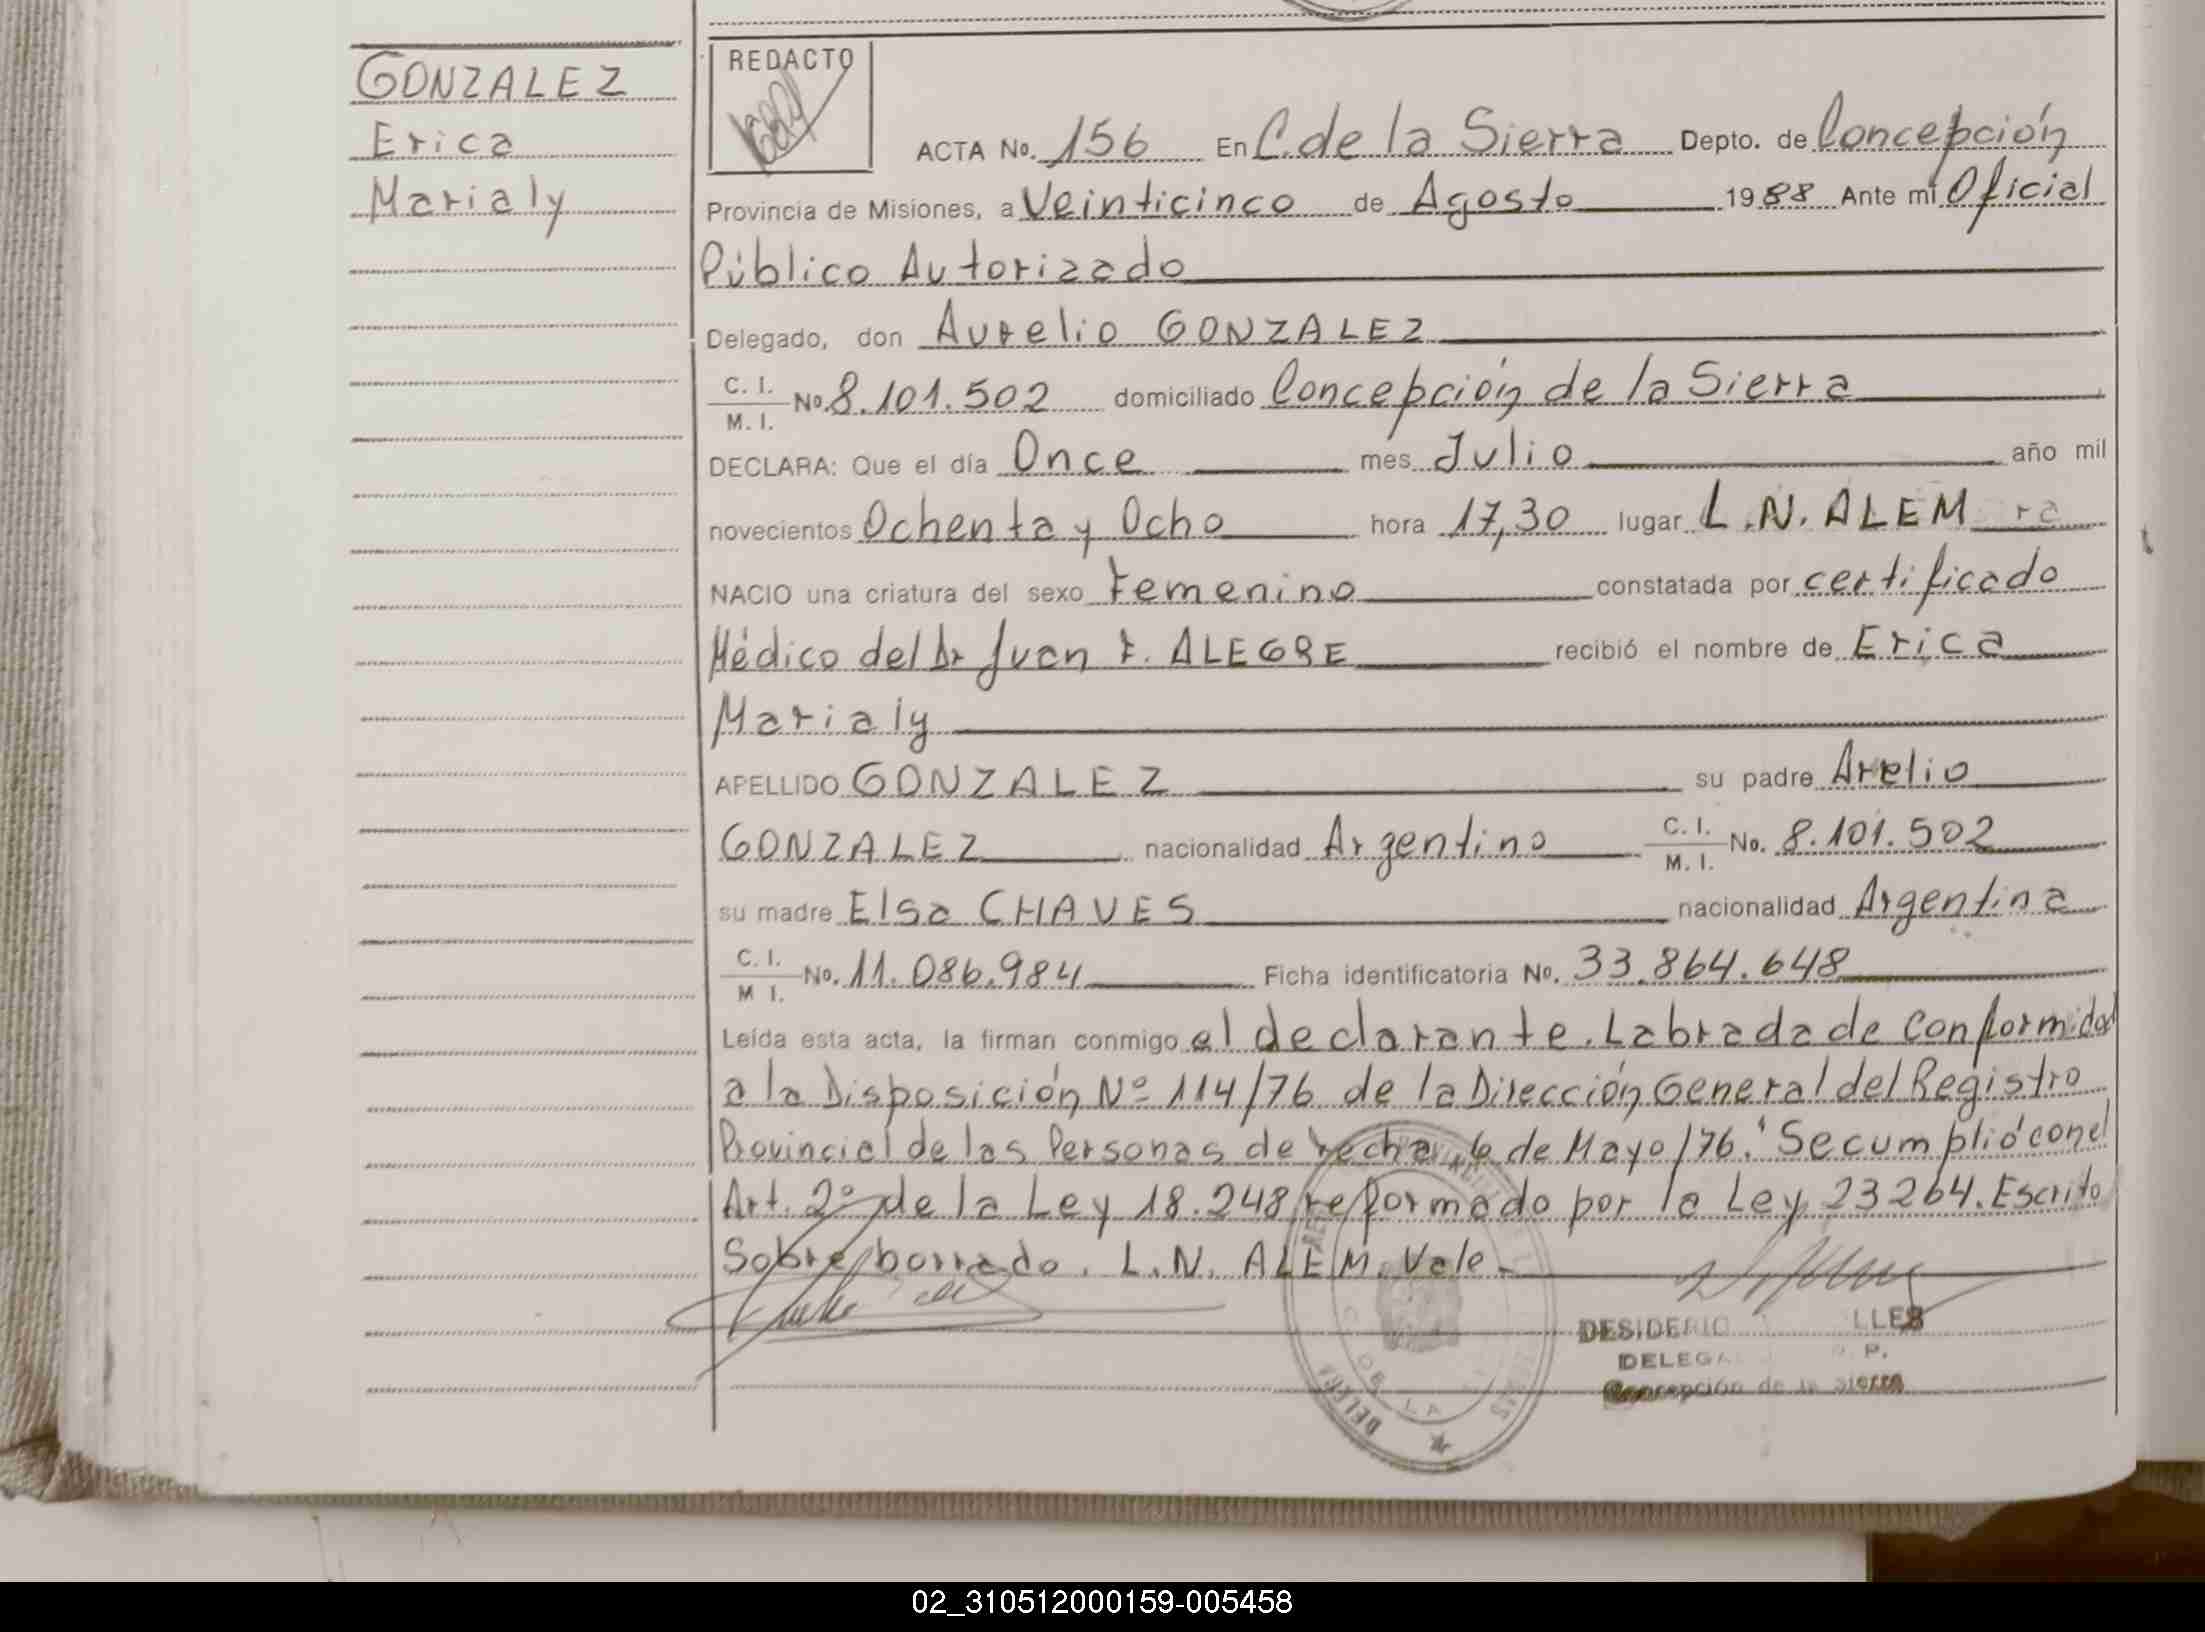 GONZALEZ
Erica
Marialy
REDACTO
ACTA No. 156 En C. de la Sierra Depto. de Concepción
Provincia de Misiones, a Veinticinco de Agosto 1988 Ante mí Oficial
Público Autorizado
Delegado, don Aurelio GONZALEZ
C. I.
M. I. No. 8.101.502 domiciliado Concepción de la Sierra
DECLARA: Que el día Once mes Julio año mil
novecientos Ochenta y Ocho hora 17,30 lugar L.N. ALEM
NACIO una criatura del sexo Femenino constatada por certificado
Médico del Dr Juan F. ALEGRE recibió el nombre de Erica
Marialy
APELLIDO GONZALEZ su padre Arelio
GONZALEZ nacionalidad Argentino C. I. M. I. No. 8.101.502
su madre Elsa CHAVES nacionalidad Argentina
C. I.
M I. No. 11.086.984 Ficha identificatoria No. 33.864.648
Leída esta acta, la firman conmigo el declarante. Labrada de Conformidad
a la Disposición Nº 114/76 de la Dirección General del Registro
Provincial de las Personas de fecha 6 de Mayo/76. Se cumplió con el
Art. 2º de la Ley 18.248 reformado por la Ley 23264. Escrito
Sobre borrado. L.N. ALEM. Vale
DESIDERIO LLES
P.
Concepción de la Sierra
DE LA
02_310512000159-005458